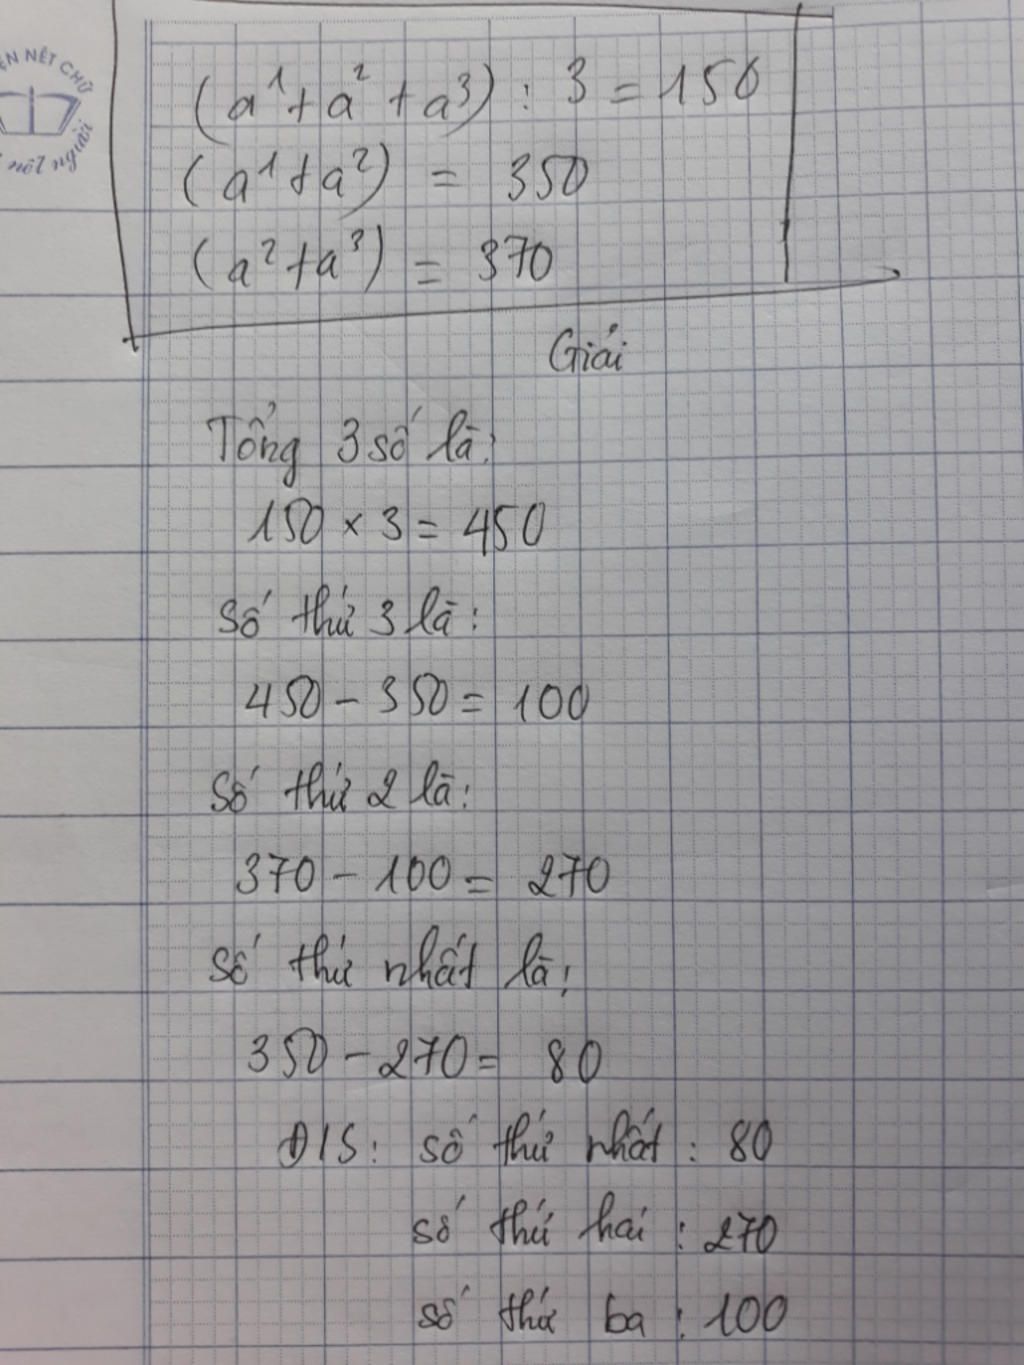 ỆN NẾT CHỮ
nết người
(a¹ + a² + a³) : 3 = 150
(a¹ + a²) = 350
(a² + a³) = 370
Giải
Tổng 3 số là:
150 × 3 = 450
Số thứ 3 là:
450 - 350 = 100
Số thứ 2 là:
370 - 100 = 270
Số thứ nhất là:
350 - 270 = 80
Đ/S: số thứ nhất : 80
số thứ hai : 270
số thứ ba : 100